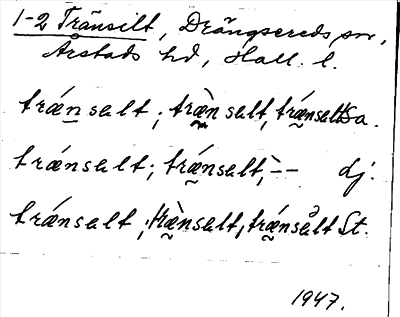 1-2 Tränsilt, Drängsereds sn,
Årstads hd, Hall. l.
trǽnsalt; træ̀nsalt, trǽnsaltSa.
trǽnsalt; trǽnsalt, -̀- dj.
trǽnsalt; træ̀nsalt, trǽnsålt St.
1947.